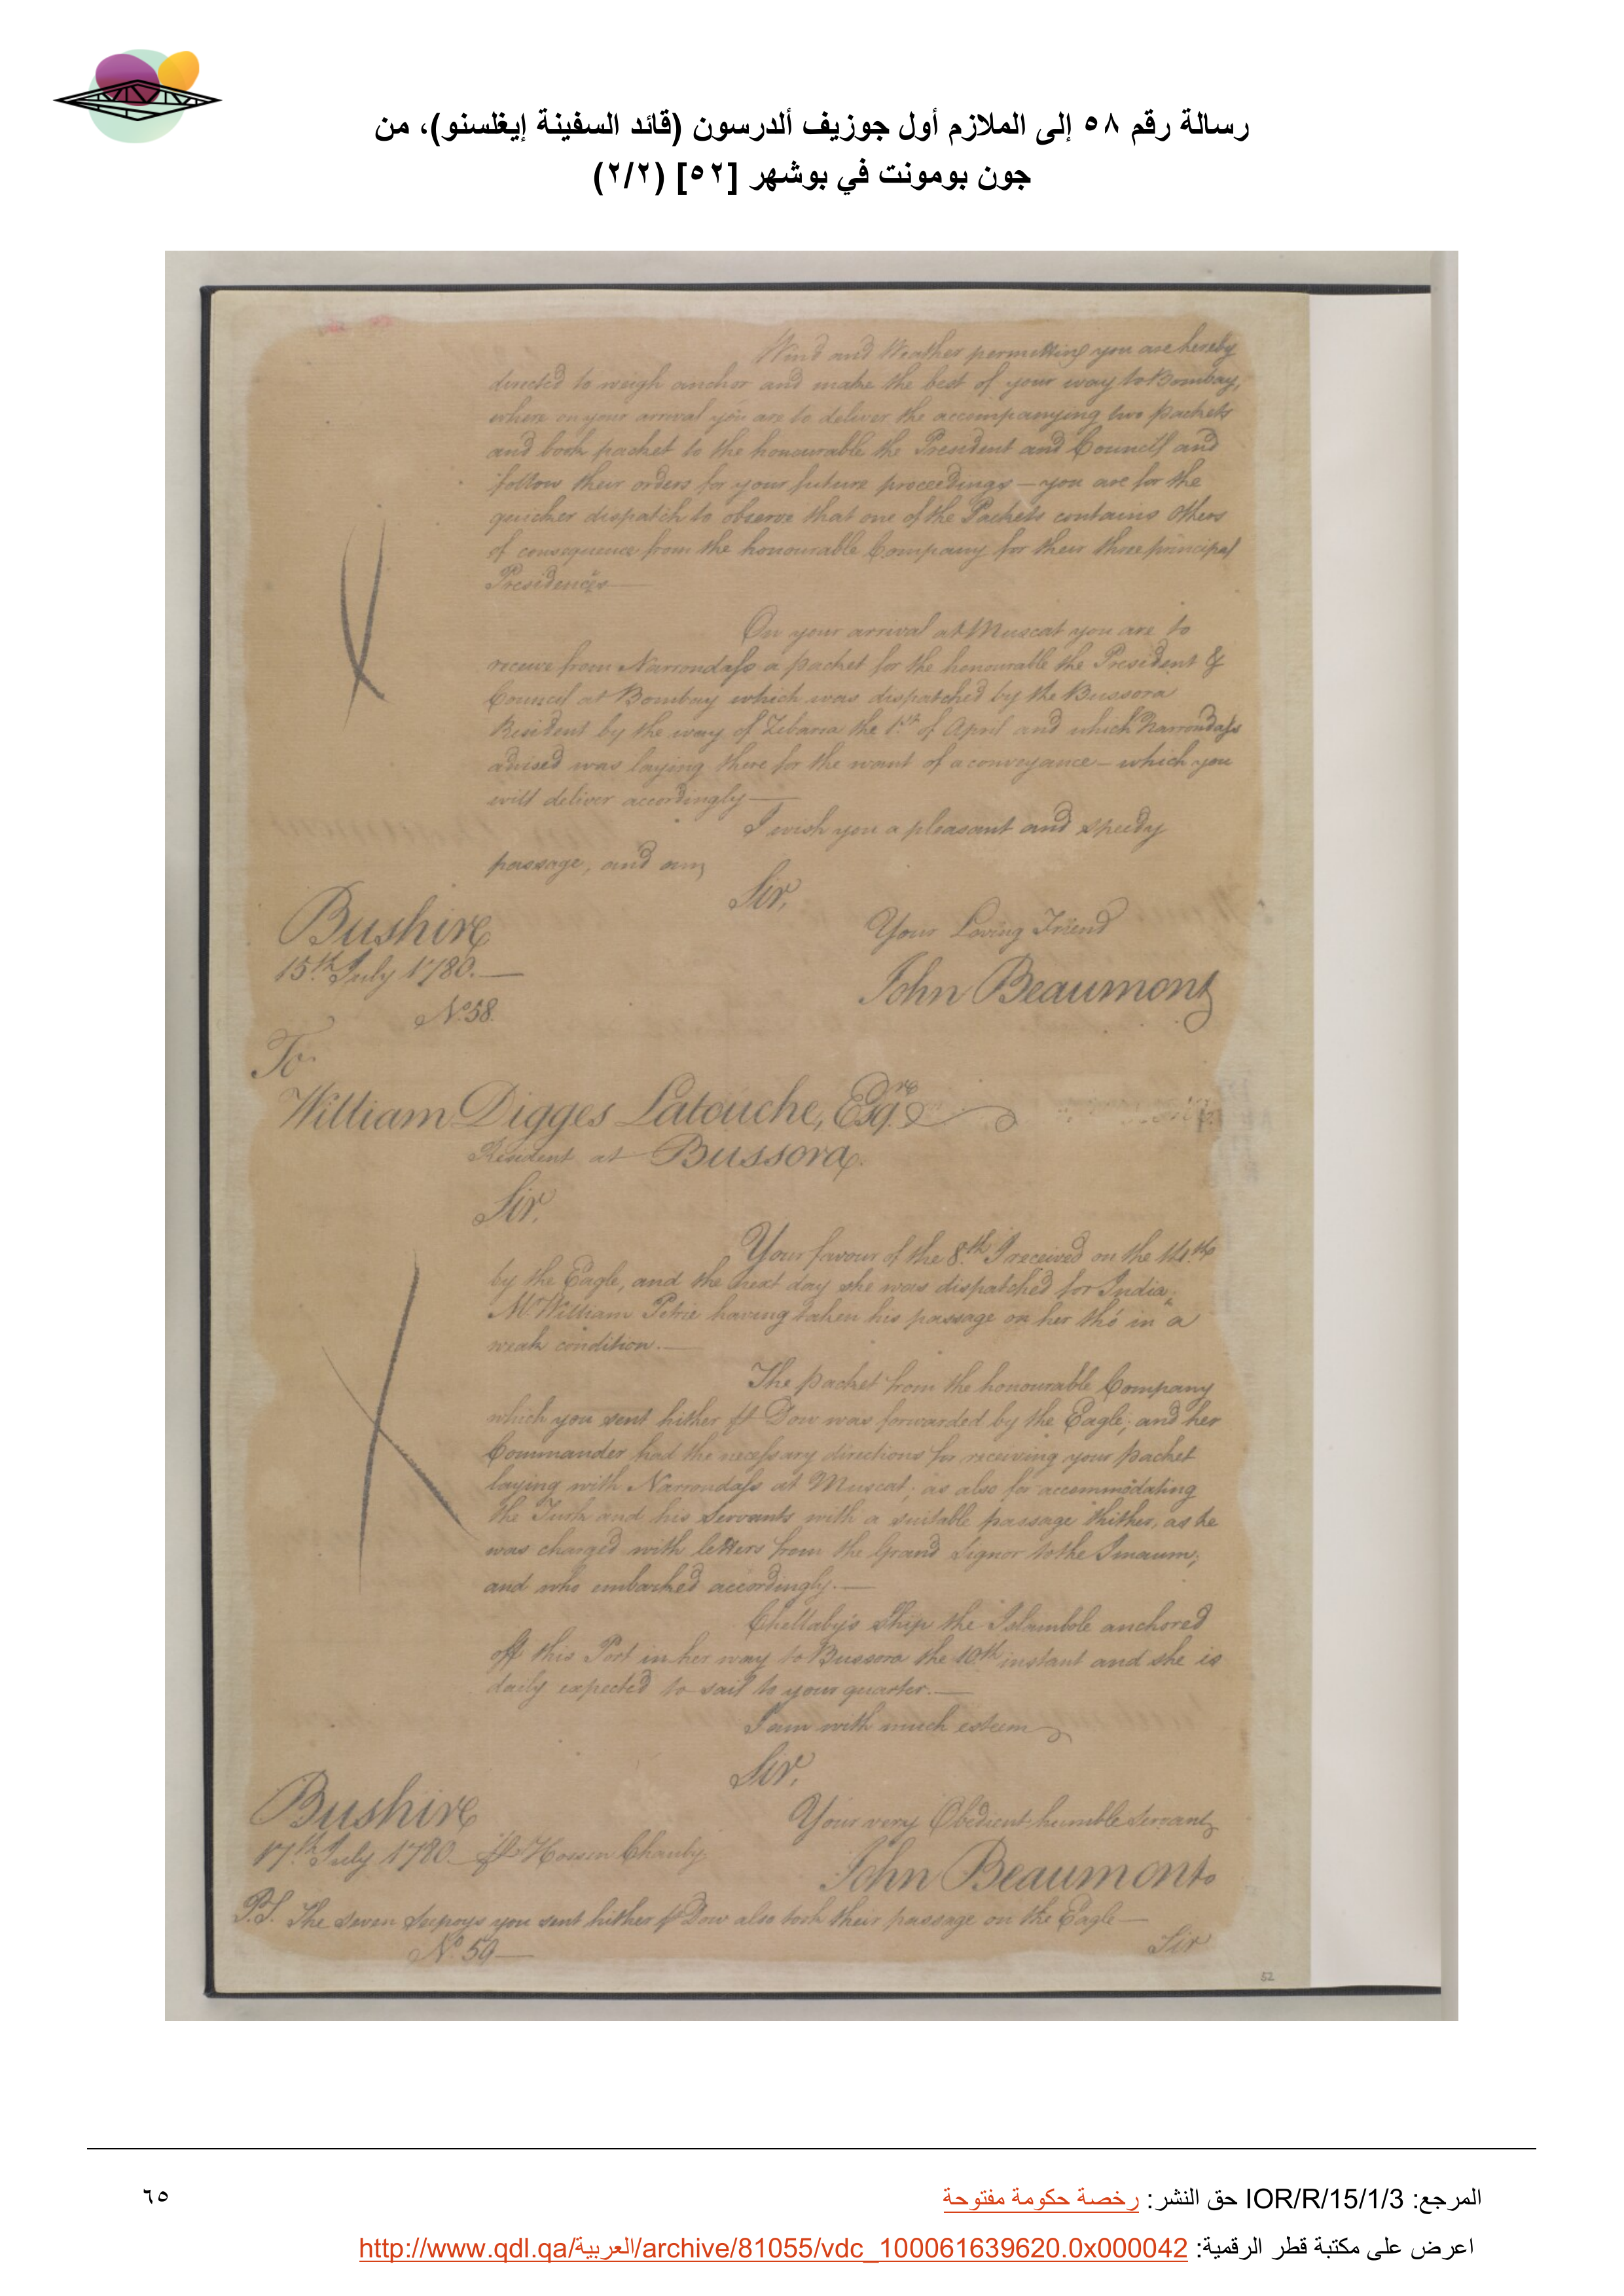 رسالة رقم ٥٨ إلى الملازم أول جوزيف ألدرسون (قائد السفينة إيغلسنو)، من
جون بومونت في بوشهر [٥٢] (٢/٢)
Wind and Weather permitting you are hereby
directed to weigh anchor and make the best of your way to Bombay,
where on your arrival you are to deliver the accompanying two packets
and book packet to the honourable the President and Council and
follow their orders for your future proceedings — you are for the
quicker dispatch to observe that one of the Packets contains others
of consequence from the honourable Company for their three principal
Presidencies —
On your arrival at Muscat you are to
receive from Narrondass a packet for the honourable the President &
Council at Bombay which was dispatched by the Bussora
Resident by the way of Zebarra the 1st of April and which Narrondass
advised was laying there for the want of a conveyance — which you
will deliver accordingly —
I wish you a pleasant and speedy
passage, and am,
Sir,
Your Loving Friend
John Beaumont
Bushire
15th July 1780. —
No. 58.
To
William Digges Latouche, Esqre
Resident at Bussora.
Sir,
Your favour of the 8th I received on the 14th
by the Eagle, and the next day she was dispatched for India,
Mr William Petrie having taken his passage on her tho' in a
weak condition. —
The packet from the honourable Company
which you sent hither pr Dow was forwarded by the Eagle; and her
Commander had the necessary directions for receiving your packet
laying with Narrondass at Muscat; as also for accommodating
the Turk and his servants with a suitable passage thither, as he
was charged with letters from the Grand Signor to the Imaum;
and who embarked accordingly. —
Chellaby's ship the Islambole anchored
off this Port in her way to Bussora the 10th instant and she is
daily expected to sail to your quarter. —
I am with much esteem
Sir,
Your very Obedient humble Servant,
John Beaumont.
Bushire
17th July 1780. — Pr Hossen Chauby
P.S. The seven Seapoys you sent hither pr Dow also took their passage on the Eagle —
No. 59 —
Sir
52
المرجع: IOR/R/15/1/3 حق النشر: رخصة حكومة مفتوحة
٦٥
اعرض على مكتبة قطر الرقمية: http://www.qdl.qa/العربية/archive/81055/vdc_100061639620.0x000042